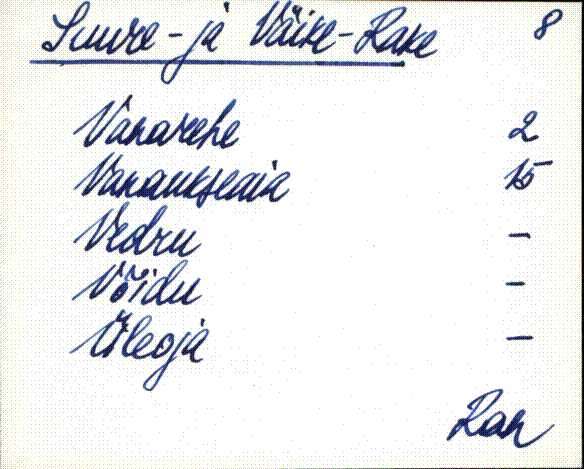 Suure- ja Väike-Rake 8
Vanarehe 2
Vanaukseaia 15
Vedru -
Võidu -
Üleoja -
Ran